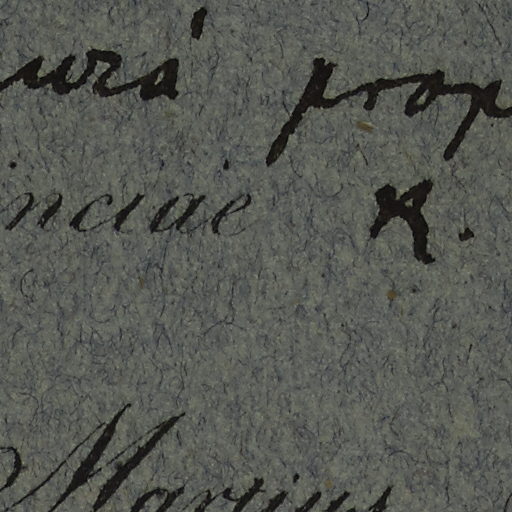 urá prop
inciae K.
Martius